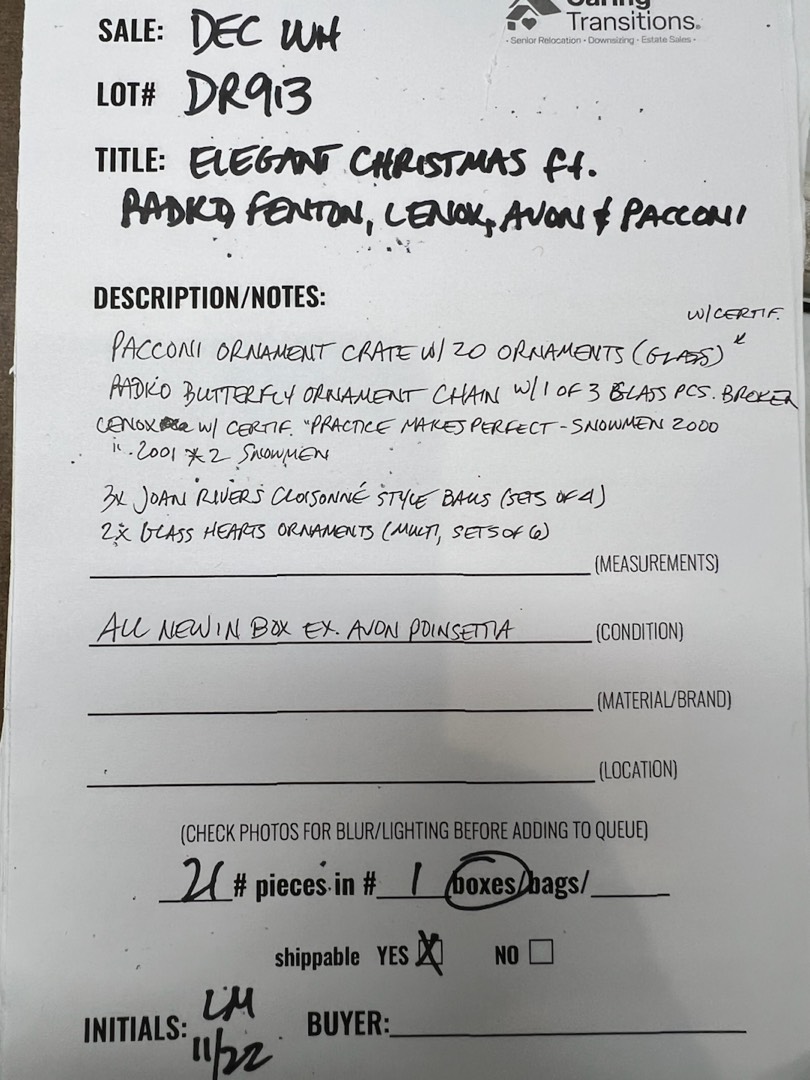 Caring
Transitions.
• Senior Relocation • Downsizing • Estate Sales •
SALE: DEC WH
LOT# DR913
TITLE: ELEGANT CHRISTMAS ft.
RADKO, FENTON, LENOX, AVON & PACCONI
DESCRIPTION/NOTES:
W/CERTIF.
PACCONI ORNAMENT CRATE W/ 20 ORNAMENTS (GLASS) *
RADKO BUTTERFLY ORNAMENT CHAIN W/ 1 OF 3 GLASS PCS. BROKEN
LENOX W/ CERTIF. "PRACTICE MAKES PERFECT - SNOWMEN 2000
". 2001 * 2 SNOWMEN
3x JOAN RIVERS CLOISONNÉ STYLE BALLS (SETS OF 4)
2x GLASS HEARTS ORNAMENTS (MULTI, SETS OF 6)
(MEASUREMENTS)
ALL NEW IN BOX EX. AVON POINSETTIA (CONDITION)
(MATERIAL/BRAND)
(LOCATION)
(CHECK PHOTOS FOR BLUR/LIGHTING BEFORE ADDING TO QUEUE)
21 # pieces in # 1 boxes/bags/
shippable YES X NO
INITIALS: LM 11/22 BUYER: